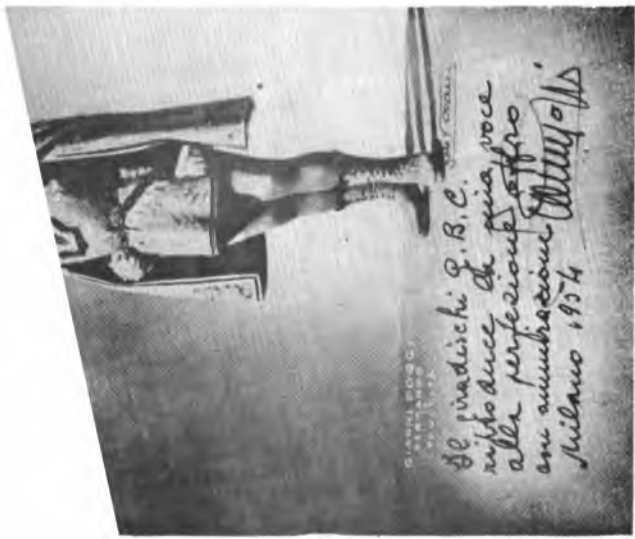 GIANNI POGGI
Il giradischi G.B.C.
riproduce la mia voce
alla perfezione offro
con ammirazione
Milano 1954